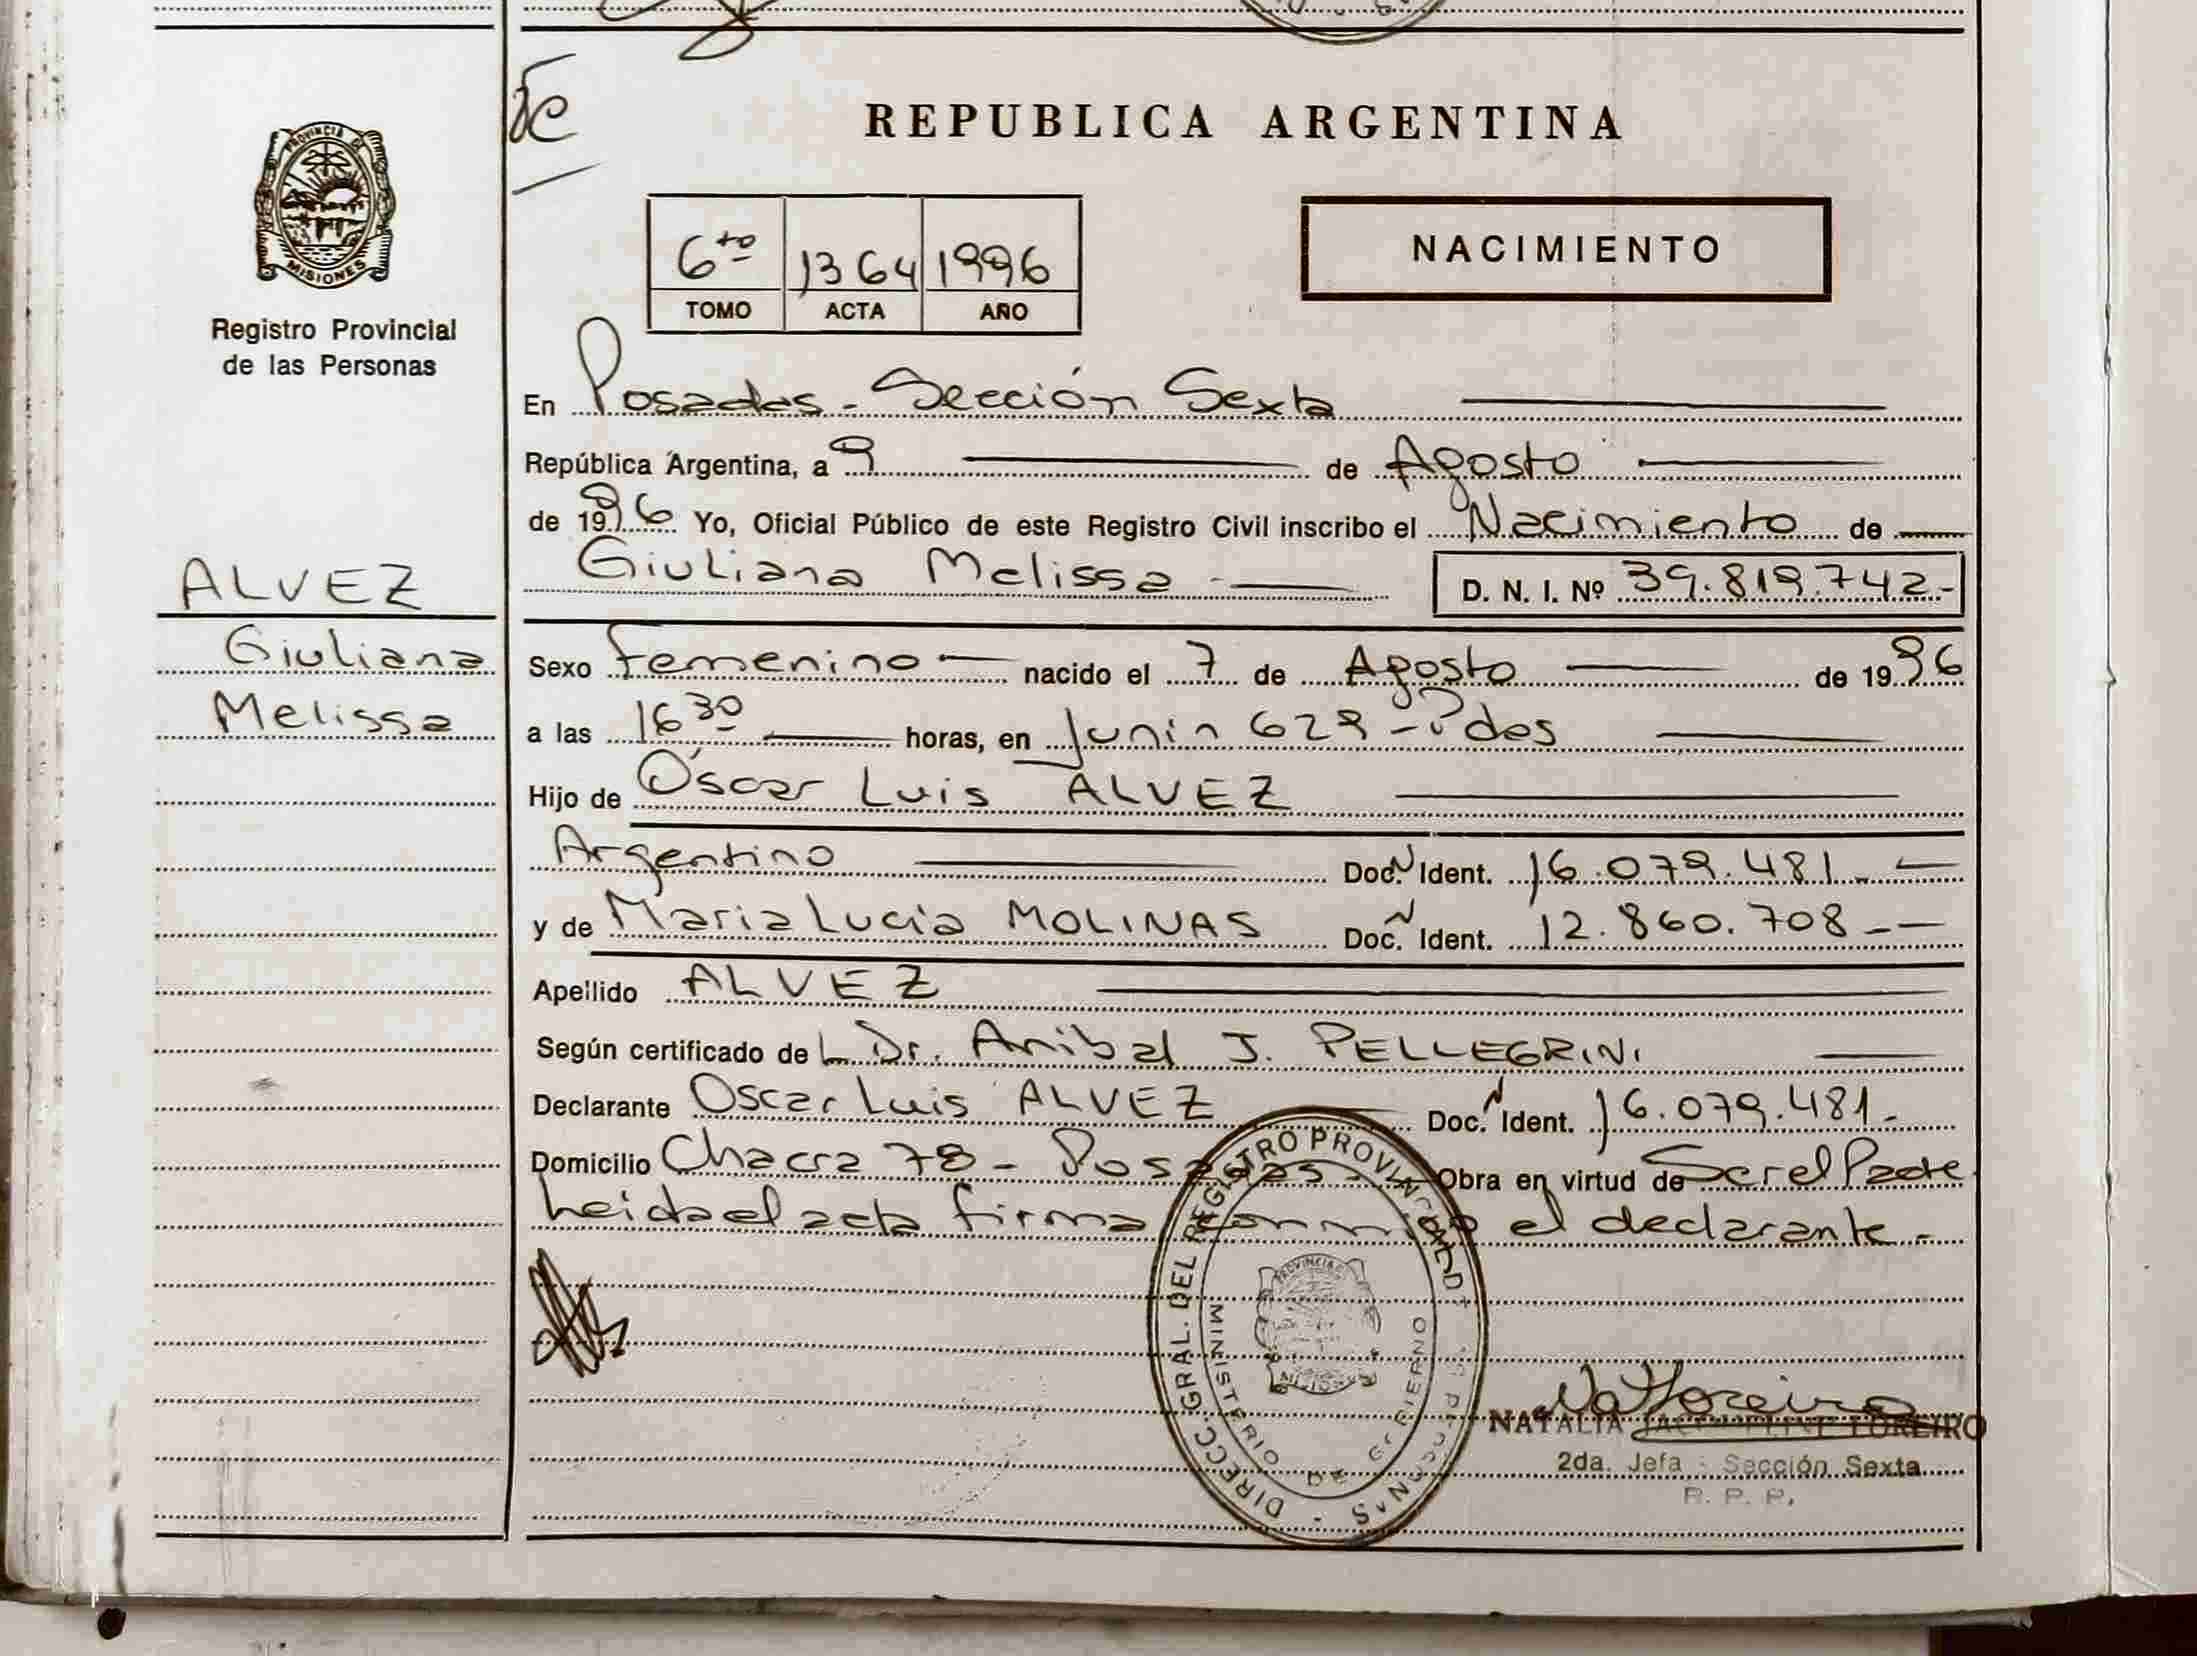 REPUBLICA ARGENTINA
PROVINCIA DE
MISIONES
Registro Provincial
de las Personas
6to 1364 1996
TOMO ACTA AÑO
NACIMIENTO
En Posadas - Sección Sexta
República Argentina, a 9 de Agosto
de 1996 Yo, Oficial Público de este Registro Civil inscribo el Nacimiento de
ALVEZ
Giuliana Melissa D. N. I. Nº 39.819.742-
Giuliana
Melissa
Sexo Femenino nacido el 7 de Agosto de 1996
a las 16 30 horas, en Junin 629 - Pdas
Hijo de Oscar Luis ALVEZ
Argentino Doc. N Ident. 16.079.481.-
y de Maria Lucia MOLINAS Doc. N Ident. 12.860.708--
Apellido ALVEZ
Según certificado de L Dr. Anibal J. PELLEGRINI
Declarante Oscar Luis ALVEZ Doc. N Ident. 16.079.481.-
Domicilio Chacra 78 - Posadas.- Obra en virtud de Ser el Padre.
Leida el acta firma conmigo el declarante.-
DIRECC. GRAL. DEL REGISTRO PROVINCIAL DE LAS PERSONAS
MINISTERIO DE GOBIERNO
PROVINCIA
MISIONES
NATALIA JACQUELINE LOREIRO
2da. Jefa - Sección Sexta
R. P. P.